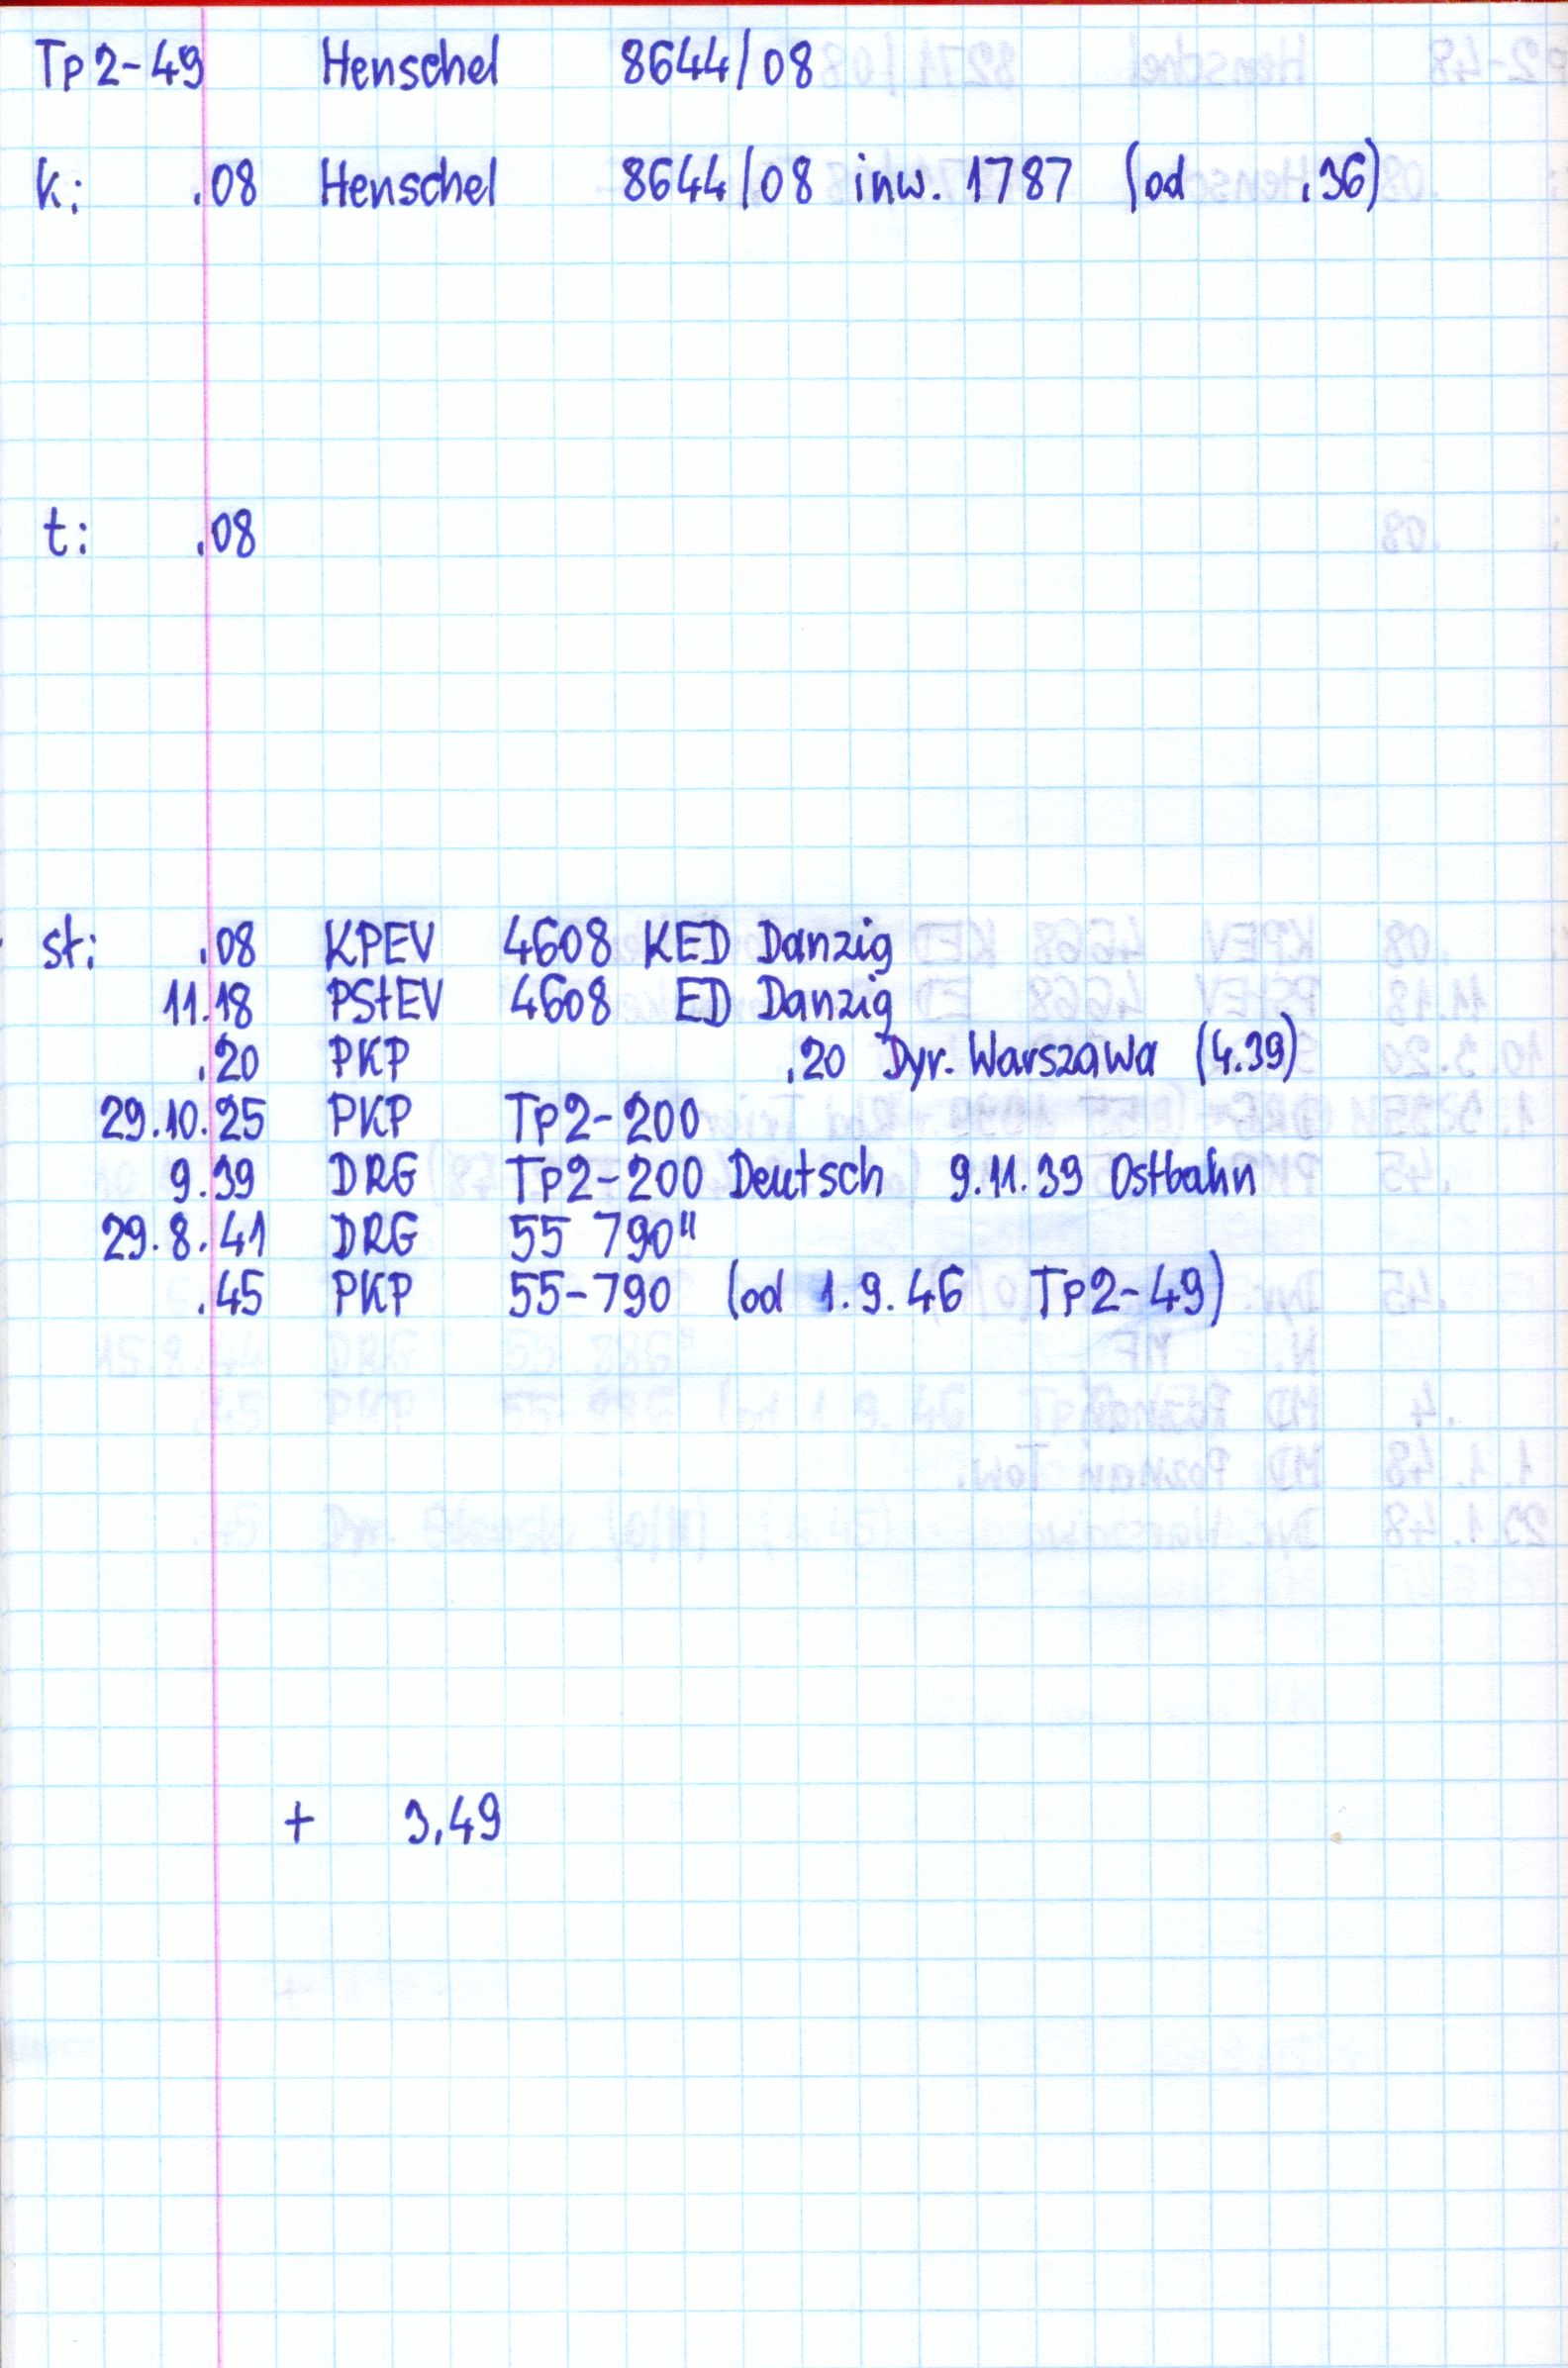 Tp2-49 Henschel 8644/08
k: .08 Henschel 8644/08 inw. 1787 (od .36)
t: .08
st: .08 KPEV 4608 KED Danzig
11.18 PStEV 4608 ED Danzig
.20 PKP .20 Dyr. Warszawa (4.39)
29.10.25 PKP Tp2-200
9.39 DRG Tp2-200 Deutsch 9.11.39 Ostbahn
29.8.41 DRG 55 790"
.45 PKP 55-790 (od 1.9.46 Tp2-49)
+ 3.49